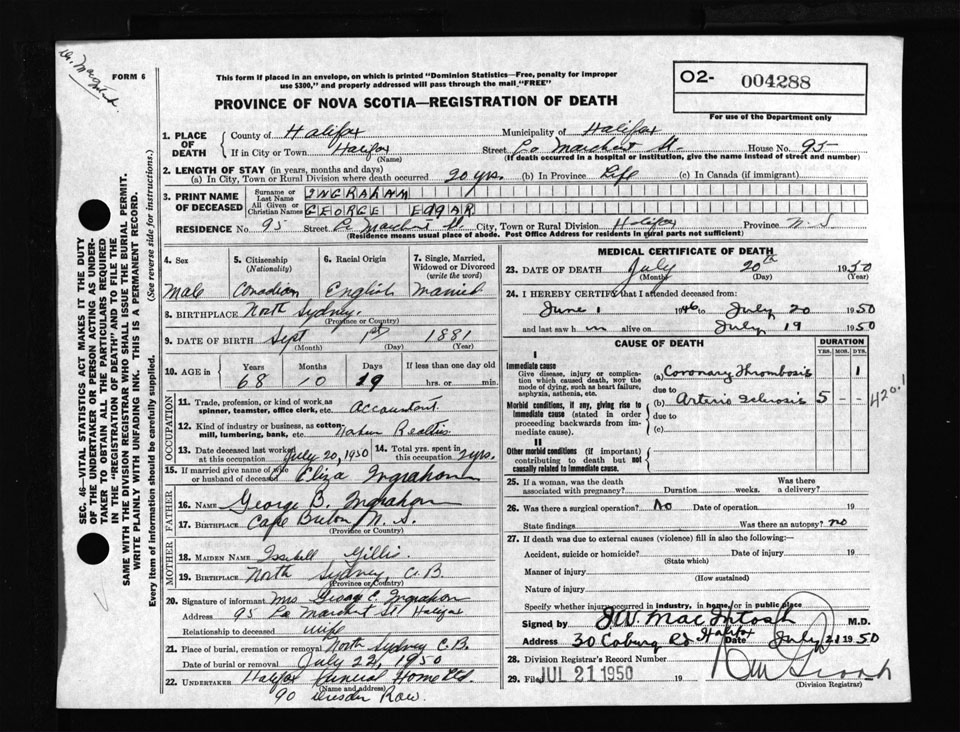 Dr. Mac
FORM 6
This form if placed in an envelope, on which is printed "Dominion Statistics—Free, penalty for improper
use $300," and properly addressed will pass through the mail "FREE"
O2- 004288
For use of the Department only
PROVINCE OF NOVA SCOTIA—REGISTRATION OF DEATH
SEC. 46—VITAL STATISTICS ACT MAKES IT THE DUTY
OF THE UNDERTAKER OR PERSON ACTING AS UNDER-
TAKER TO OBTAIN ALL THE PARTICULARS REQUIRED
IN THE "REGISTRATION OF DEATH" AND TO FILE THE
SAME WITH THE DIVISION REGISTRAR WHO SHALL ISSUE THE BURIAL PERMIT.
WRITE PLAINLY WITH UNFADING INK. THIS IS A PERMANENT RECORD.
Every item of information should be carefully supplied. (See reverse side for instructions.)
1. PLACE OF DEATH County of Halifax Municipality of Halifax
If in City or Town Halifax (Name) Street La Marchant St. House No. 95
(If death occurred in a hospital or institution, give the name instead of street and number)
2. LENGTH OF STAY (in years, months and days)
(a) In City, Town or Rural Division where death occurred 20 yrs. (b) In Province Life (c) In Canada (if immigrant)
3. PRINT NAME OF DECEASED
Surname or Last Name INGRAHAM
All Given or Christian Names GEORGE EDGAR
RESIDENCE No. 95 Street La Marchant St City, Town or Rural Division Halifax Province N.S
(Residence means usual place of abode. Post Office Address for residents in rural parts not sufficient)
4. Sex 5. Citizenship (Nationality) 6. Racial Origin 7. Single, Married, Widowed or Divorced (write the word)
Male Canadian English Married
8. BIRTHPLACE North Sydney.
(Province or Country)
9. DATE OF BIRTH Sept 1st 1881
(Month) (Day) (Year)
10. AGE in Years Months Days If less than one day
68 10 19 hrs. or min.
OCCUPATION
11. Trade, profession, or kind of work as
spinner, teamster, office clerk, etc. Accountant
12. Kind of industry or business, as cotton
mill, lumbering, bank, etc.
13. Date deceased last worked at this occupation July 20, 1950 14. Total yrs. spent in this occupation 2 yrs.
15. If married give name of wife
or husband of deceased Eliza Ingraham
FATHER
16. Name George B. Ingraham
17. Birthplace Cape Breton N.S.
(Province or Country)
MOTHER
18. Maiden Name Issabell Gillis
19. Birthplace North Sydney, C.B.
(Province or Country)
20. Signature of informant Mrs George E. Ingraham
Address 95 La Marchant St Halifax
Relationship to deceased wife
21. Place of burial, cremation or removal North Sydney C.B.
Date of burial or removal July 22, 1950
22. Undertaker Halifax Funeral Home Ltd.
(Name and address)
90 Dresden Row.
MEDICAL CERTIFICATE OF DEATH
23. DATE OF DEATH July 20th 1950
(Month) (Day) (Year)
24. I HEREBY CERTIFY that I attended deceased from:
June 1 1946 to July 20 1950
and last saw h im alive on July 19 1950
CAUSE OF DEATH DURATION
YRS. MOS. DYS.
I
Immediate cause
Give disease, injury or complica-
tion which caused death, not the
mode of dying, such as heart failure,
asphyxia, asthenia, etc.
(a) Coronary Thrombosis 1
due to
Morbid conditions, if any, giving rise to
immediate cause (stated in order
proceeding backwards from im-
mediate cause).
(b) Arterio sclerosis 5 - -
due to
(c)
420.1
II
Other morbid conditions (if important)
contributing to death but not
causally related to immediate cause.
25. If a woman, was the death
associated with pregnancy? Duration weeks. Was there a delivery?
26. Was there a surgical operation? No Date of operation 19
State findings Was there an autopsy? no
27. If death was due to external causes (violence) fill in also the following:—
Accident, suicide or homicide? Date of injury 19
(State which)
Manner of injury
(How sustained)
Nature of injury
Specify whether injury occurred in industry, in home, or in public place
Signed by J.W. MacIntosh M.D.
Address 30 Coburg Rd Halifax Date July 21 1950
28. Division Registrar's Record Number
29. Filed JUL 21 1950 19
(Division Registrar)